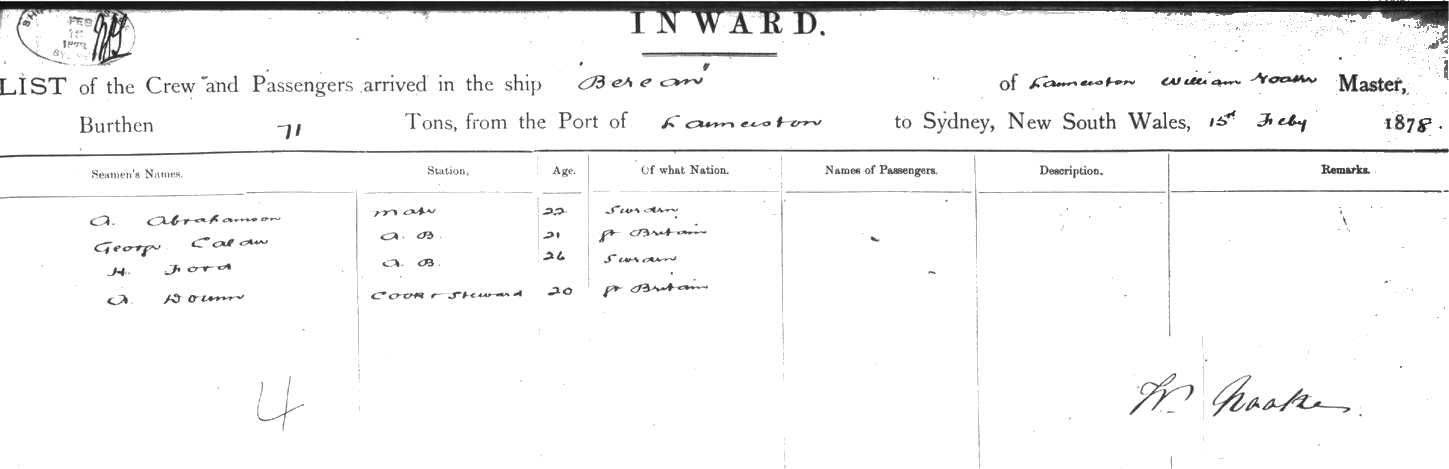 FEB
15
1878
INWARD.
LIST of the Crew and Passengers arrived in the ship "Berean" of Launceston William Noakes Master,
Burthen 71 Tons, from the Port of Launceston to Sydney, New South Wales, 15th Feby 1878.
Seamen's Names. Station, Age. Of what Nation. Names of Passengers. Description. Remarks.
A. Abrahamson Mate 22 Sweden
George A. B. 21 Gt Britain
H. Ford A. B. 26 Sweden
A. Cook & Steward 20 Gt Britain
4
Wm Noakes.